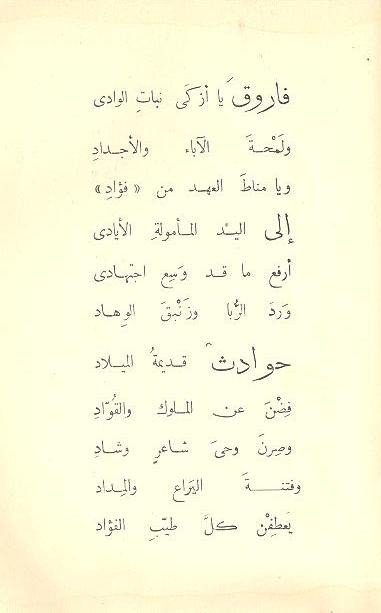 فاروقَ يا أزكَى نباتِ الوادى
ولَمْحةَ الآباء والأجدادِ
ويا مناطَ العهد من «فؤادِ»
إلى اليدْ المأمولةِ الأيادى
أرفع ما قد وَسِع اجتهادى
وَردَ الرُّبا وزَنْبقَ الوِهاد
حوادثٌ قديمةُ الميلاد
فِضْنَ عن الملوك والقُوّادِ
وصِرنَ وحىَ شاعرٍ وشادِ
وفتنةَ اليَراع والمِداد
يَعطِفْن كلَّ طيِّبِ الفؤاد